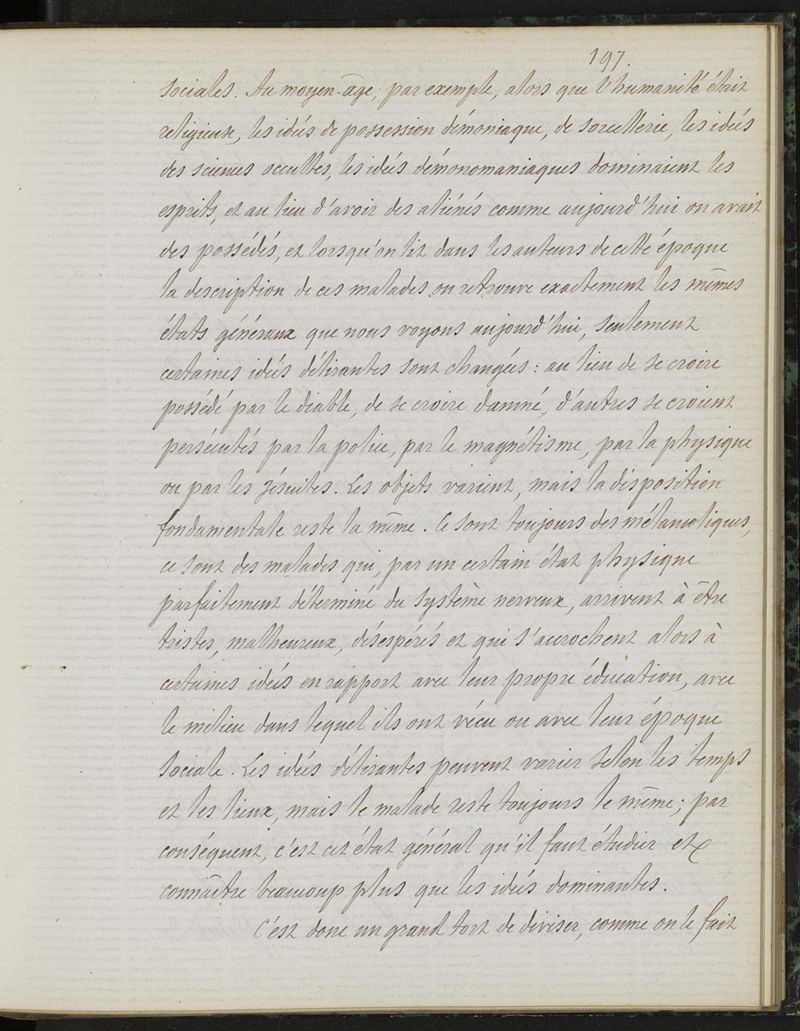 197.
sociales. Au moyen-âge, par exemple, alors que l'humanité était
religieuse, les idées de possession démoniaque, de sorcellerie, les idées
des sciences occultes, les idées démonomaniaques dominaient les
esprits, et au lieu d'avoir des aliénés comme aujourd'hui on avait
des possédés, et lorsqu'on lit dans les auteurs de cette époque
la description de ces malades on retrouve exactement les mêmes
états généraux que nous voyons aujourd'hui, seulement
certaines idées délirantes sont changées : au lieu de se croire
possédé par le diable, de se croire damné, d'autres se croient
persécutés par la police, par le magnétisme, par la physique
ou par les jésuites. Les objets varient, mais la disposition
fondamentale reste la même. Ce sont toujours des mélancoliques,
ce sont des malades qui, par un certain état physique
parfaitement déterminé du système nerveux, arrivent à être
tristes, malheureux, désespérés et qui s'accrochent alors à
certaines idées en rapport avec leur propre éducation, avec
le milieu dans lequel ils ont vécu ou avec leur époque
sociale. Les idées délirantes peuvent varier selon les temps
et les lieux, mais le malade reste toujours le même ; par
conséquent, c'est cet état général qu'il faut étudier et
connaître beaucoup plus que les idées dominantes.
C'est donc un grand tort de diviser, comme on le fait